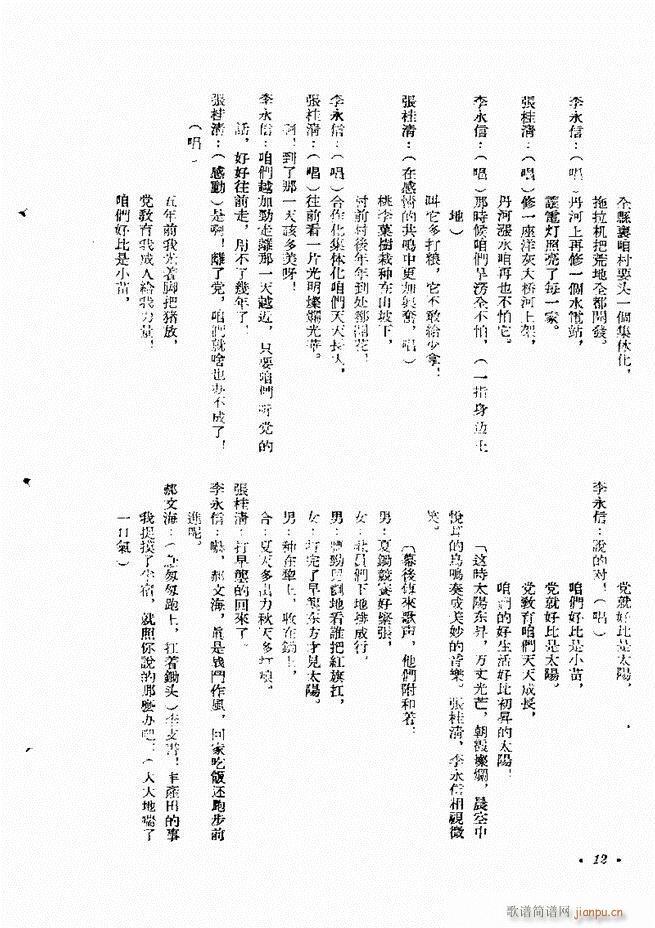 全縣襄咱村要头一個集体化,
拖拉机把荒地全都開發。
李永信:(唱)丹河上再修一個水電站,
電灯照亮了每一家。
張桂清:(唱)修一座洋灰大桥河上架,
丹河漲水咱再也不怕它。
李永信:(唱)那時候咱們旱澇全不怕,(一指身边土
地)
叫它多打粮,它不敢給少拿!
張桂清:(在感情的共鳴中更加興奮,唱)
桃李菓樹栽种在山坡下,
村前村後年年到处都開花。
李永信:(唱)合作化集体化咱們天天長大,
張桂清:(唱)往前看一片光明燦爛光華。
啊!到了那一天該多美呀!
李永信:咱們越加勁走離那一天越近,只要咱們听党的
話,好好往前走,用不了幾年了!
張桂清:(感動)是啊!離了党,咱們就啥也办不成了!
(唱)
五年前我光着脚把猪放,
党教育我成人給我力量!
咱們好比是小苗,
党就好比是太陽,
李永信:說的对!(唱)
咱們好比是小苗,
党就好比是太陽。
党教育咱們天天成長,
咱們的好生活好比初昇的太陽!
〔這時太陽东昇,万丈光芒,朝霞燦爛,晨空中
悅耳的鳥鳴奏成美妙的音樂。張桂清,李永信相視微
笑。
〔幕後傳來歌声,他們附和着:
男:夏鋤競賽好緊張,
女:社員們下地排成行。
男:加勁兒剷地看誰把紅旗扛,
女:打完了早壟东方才見太陽。
男:种在犂上,收在鋤上,
合:夏天多出力秋天多打粮。
張桂清:打早壟的回來了。
李永信:嘿,郝文海,眞是戰鬥作風,回家吃飯还跑步前
進呢。
郝文海:(急匆匆跑上,扛着鋤头)李支書!丰產田的事
我捉摸了半宿,就照你說的那麽办吧!(大大地喘了
一口氣)
• 12 •
歌谱简谱网 jianpu.cn